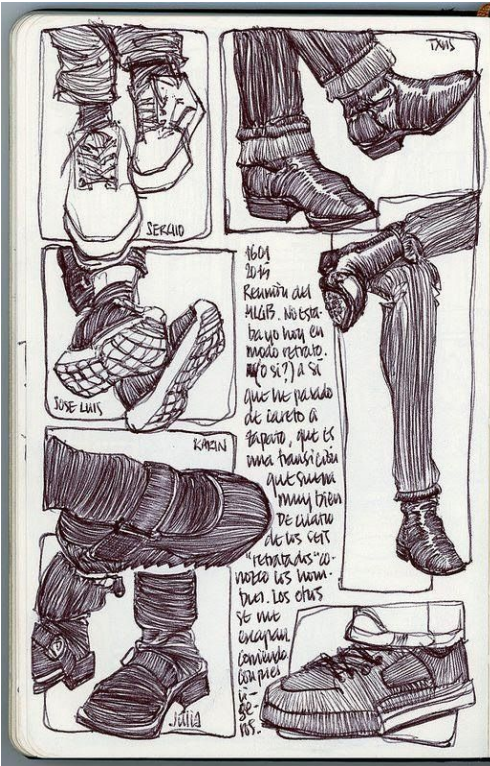 TXUS
SERGIO
1601
2015
Reunión del
4LGB. No esta-
ba yo hoy en
modo retrato.
(¿O sí?) a sí
que he pasado
de careto a
zapato, que es
una transición
que suena
muy bien
De cuatro
de los seis
"retratados" co-
nozco los nom-
bres. Los otros
se me
escapan
corriendo
con pies
li-
ge-
ros.
JOSE LUIS
KARIN
Julia